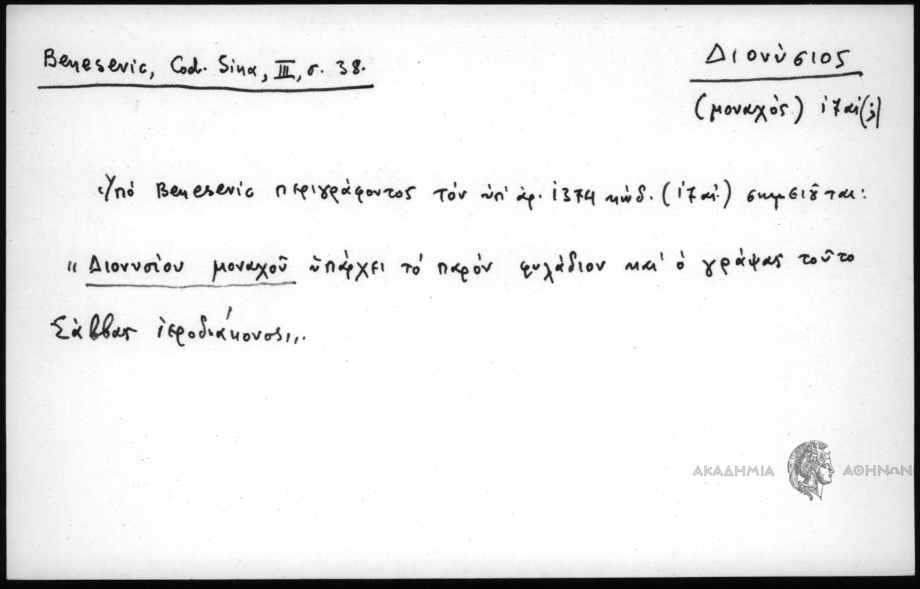 Benesevic, Cod. Sina, III, σ. 38.
Διονύσιος
(μοναχός) ιζ' αἰ(;)
Ὑπό Benesevic περιγράφοντος τόν ὑπ' ἀρ. 1374 κώδ. (ιζ' αἰ.) σημειοῦται:
"Διονυσίου μοναχοῦ ὑπάρχει τό παρόν φυλάδιον καί ὁ γράψας τοῦτο
Σάββας ἱεροδιάκονος,,.
ΑΚΑΔΗΜΙΑ ΑΘΗΝΩΝ